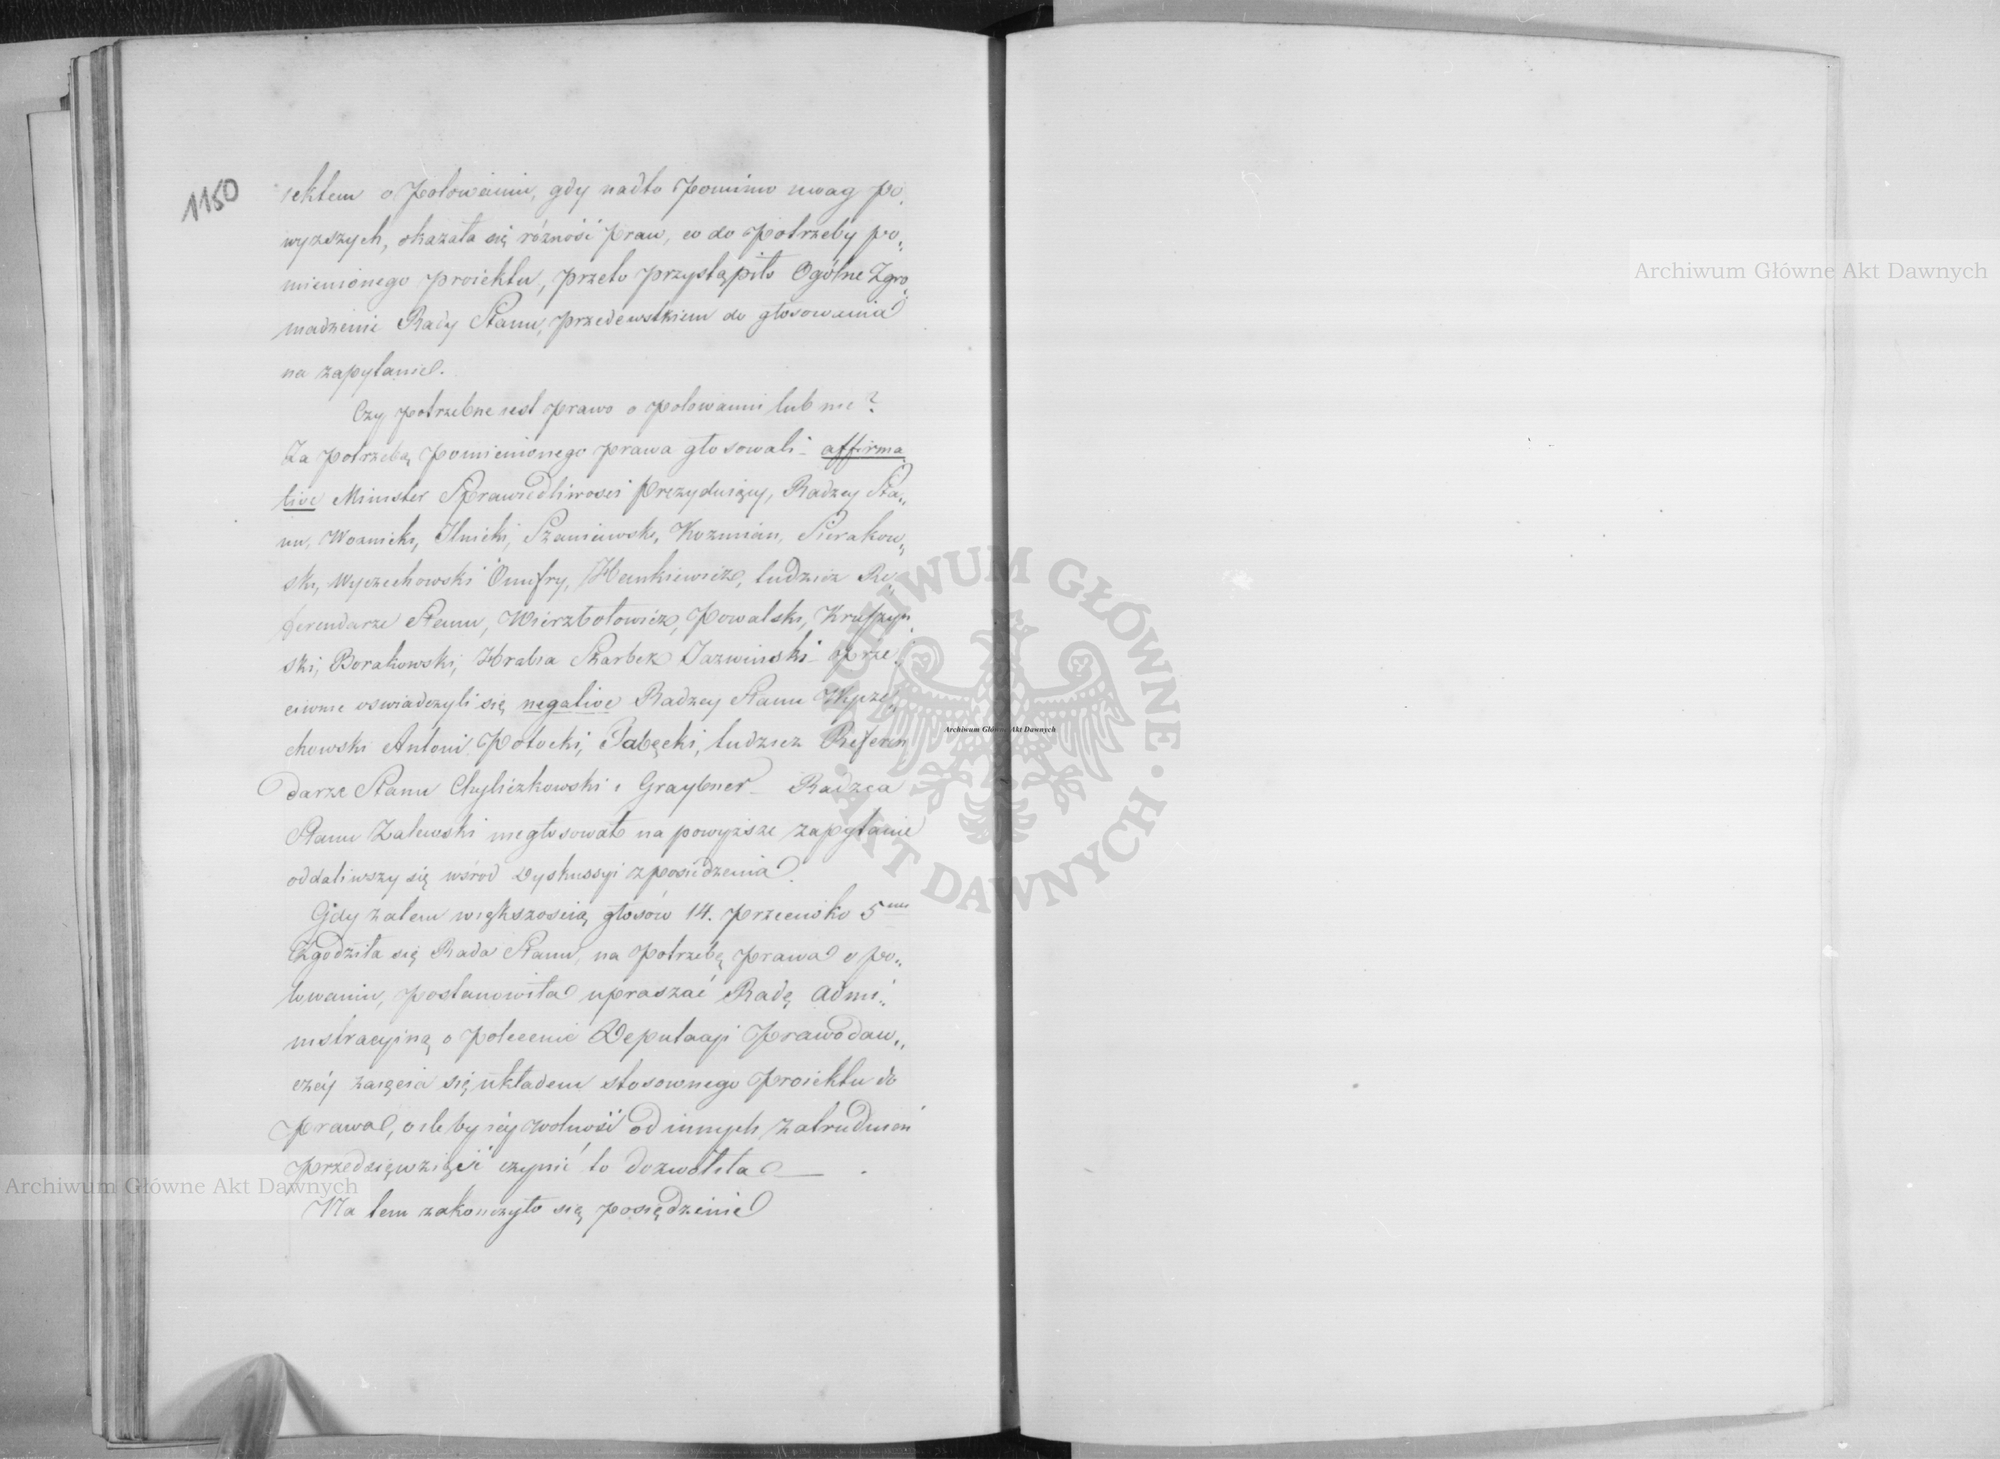 1150
iektem o polowaniu, gdy nadto pomimo uwag po„
wyższych, okazała się różność praw, co do potrzeby po„
mienionego proiektu, przeto przystąpiło Ogólne Zgro„
madzenie Rady Stanu, przedewstkiem do głosowania
na zapytanie.
Czy potrzebne iest prawo o polowaniu lub nie?
Za potrzebą pomienionego prawa głosowali – affirma„
tive Minister Sprawiedliwości Prezyduiący, Radzcy Sta„
nu, Woznicki, Ilnicki, Szaniawski, Kozmian, Sierakow„
ski, Wyczechowski Onufry, Hankiewicz, tudzież Re„
ferendarze Stanu, Wierzbołowicz, Kowalski, Kruszyń
ski, Borakowski, Hrabia Skarbek Jazwinski – prze„
ciwnie oswiadczyli się negative Radzcy Stanu Wycze„
chowski Antoni, Potocki, Tabęcki, tudzież Referen
darze Stanu Chyliczkowski i Graybner – Radzca
Stanu Zalewski niegłosował na powyższe zapytanie
oddaliwszy się wśród Dyskussyi z posiedzenia.
Gdy zatem większością głosów 14. przeciwko 5ciu
Zgodziła się Rada Stanu, na potrzebę prawa o po„
lowaniu, postanowiła upraszać Radę Admi„
nistracyiną o polecenie Deputacyi Prawodaw„
czéy zaięcia się układem stosownego proiektu do
prawa, o ile by iéy wolność od innych zatrudnień
przedsięwzięć czynić to dozwoliła –
Na tem zakończyło się posiędzenie
Archiwum Główne Akt Dawnych
Archiwum Główne Akt Dawnych
Archiwum Główne Akt Dawnych
ARCHIWUM GŁÓWNE · AKT DAWNYCH ·